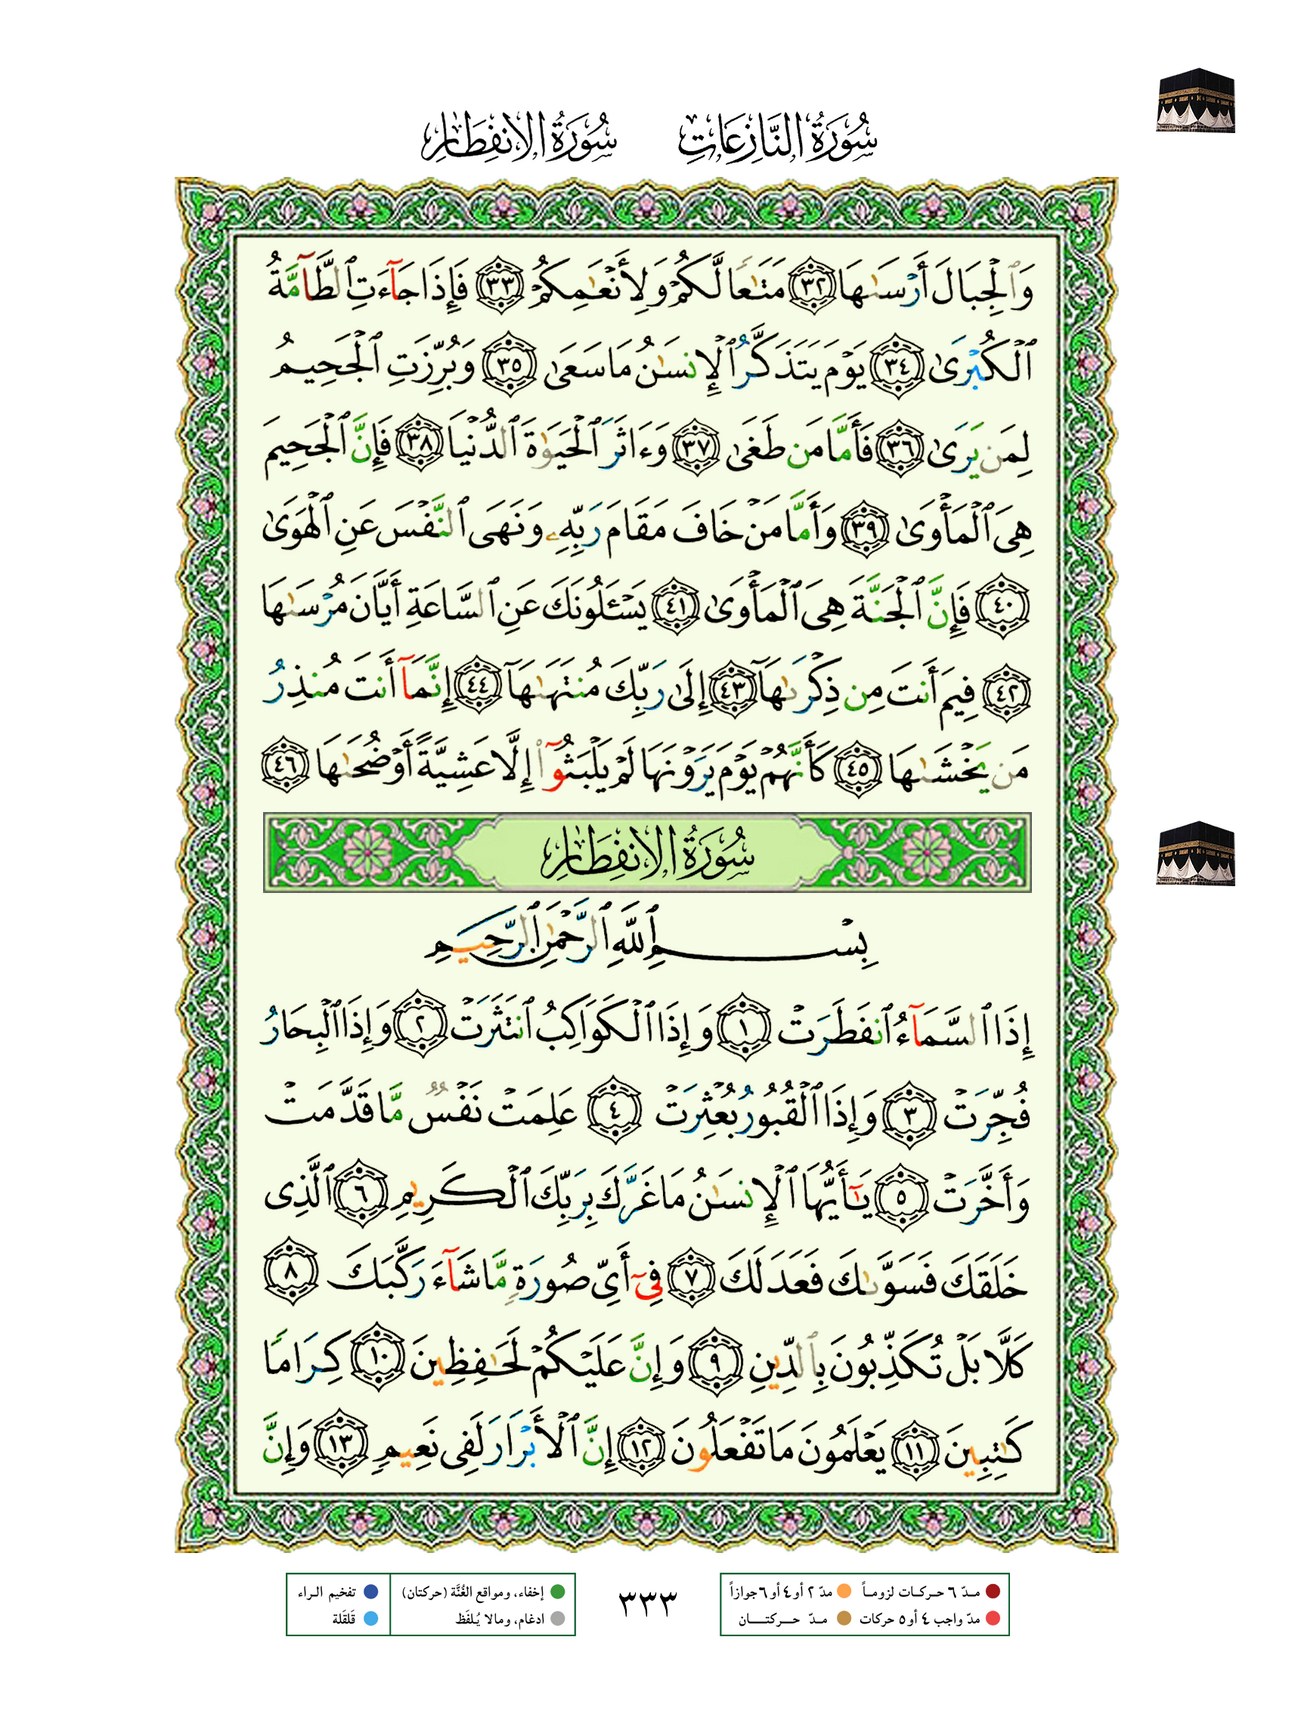 سُورَةُ النَّازِعَاتِ سُورَةُ الِانفِطَارِ
وَٱلْجِبَالَ أَرْسَىٰهَا ٣٢ مَتَٰعًا لَّكُمْ وَلِأَنْعَٰمِكُمْ ٣٣ فَإِذَا جَآءَتِ ٱلطَّآمَّةُ
ٱلْكُبْرَىٰ ٣٤ يَوْمَ يَتَذَكَّرُ ٱلْإِنسَٰنُ مَا سَعَىٰ ٣٥ وَبُرِّزَتِ ٱلْجَحِيمُ
لِمَن يَرَىٰ ٣٦ فَأَمَّا مَن طَغَىٰ ٣٧ وَءَاثَرَ ٱلْحَيَوٰةَ ٱلدُّنْيَا ٣٨ فَإِنَّ ٱلْجَحِيمَ
هِىَ ٱلْمَأْوَىٰ ٣٩ وَأَمَّا مَنْ خَافَ مَقَامَ رَبِّهِۦ وَنَهَى ٱلنَّفْسَ عَنِ ٱلْهَوَىٰ
٤٠ فَإِنَّ ٱلْجَنَّةَ هِىَ ٱلْمَأْوَىٰ ٤١ يَسْـَٔلُونَكَ عَنِ ٱلسَّاعَةِ أَيَّانَ مُرْسَىٰهَا
٤٢ فِيمَ أَنتَ مِن ذِكْرَىٰهَآ ٤٣ إِلَىٰ رَبِّكَ مُنتَهَىٰهَآ ٤٤ إِنَّمَآ أَنتَ مُنذِرُ
مَن يَخْشَىٰهَا ٤٥ كَأَنَّهُمْ يَوْمَ يَرَوْنَهَا لَمْ يَلْبَثُوٓا۟ إِلَّا عَشِيَّةً أَوْ ضُحَىٰهَا ٤٦
سُورَةُ الِانفِطَارِ
بِسْمِ ٱللَّهِ ٱلرَّحْمَٰنِ ٱلرَّحِيمِ
إِذَا ٱلسَّمَآءُ ٱنفَطَرَتْ ١ وَإِذَا ٱلْكَوَاكِبُ ٱنتَثَرَتْ ٢ وَإِذَا ٱلْبِحَارُ
فُجِّرَتْ ٣ وَإِذَا ٱلْقُبُورُ بُعْثِرَتْ ٤ عَلِمَتْ نَفْسٌ مَّا قَدَّمَتْ
وَأَخَّرَتْ ٥ يَٰٓأَيُّهَا ٱلْإِنسَٰنُ مَا غَرَّكَ بِرَبِّكَ ٱلْكَرِيمِ ٦ ٱلَّذِى
خَلَقَكَ فَسَوَّىٰكَ فَعَدَلَكَ ٧ فِىٓ أَىِّ صُورَةٍ مَّا شَآءَ رَكَّبَكَ ٨
كَلَّا بَلْ تُكَذِّبُونَ بِٱلدِّينِ ٩ وَإِنَّ عَلَيْكُمْ لَحَٰفِظِينَ ١٠ كِرَامًا
كَٰتِبِينَ ١١ يَعْلَمُونَ مَا تَفْعَلُونَ ١٢ إِنَّ ٱلْأَبْرَارَ لَفِى نَعِيمٍ ١٣ وَإِنَّ
مـدّ ٦ حـركـات لزومـاً مدّ ٢ أو ٤ أو ٦ جوازاً
مدّ واجب ٤ أو ٥ حركات مـدّ حـــركتـــــان
٣٣٣
إخفاء، ومواقع الغُنَّة (حركتان) تفخيم الـراء
ادغام، ومالا يُـلفَظ قَلقَلة